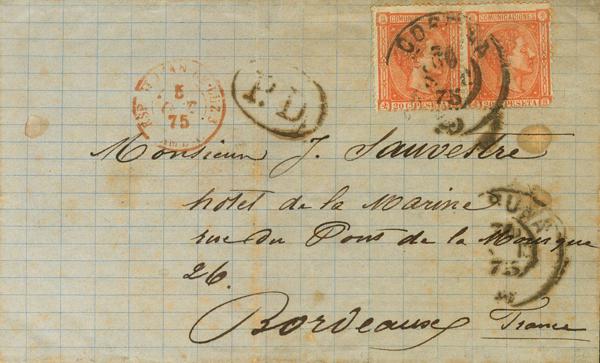 COMUNICACIONES COMUNICACIONES
20 C. PESETA 20 C. PESETA
75
5
75
P.D.
Monsieur J. Sauvestre
hôtel de la Marine
rue du Pont de la Mousque
26.
Bordeaux France
75